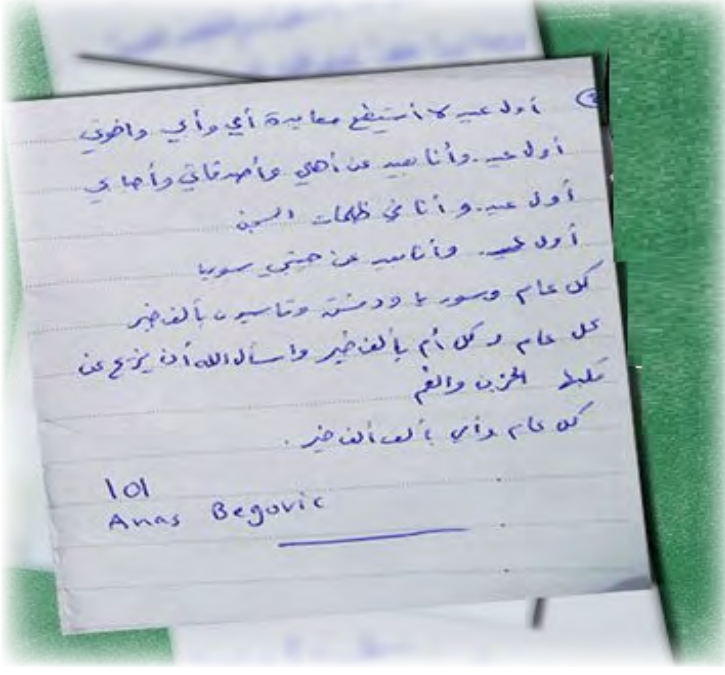 أول عيد لا أستطيع معايدة أمي وأبي واخوتي
أول عيد. وأنا بعيد عن أهلي وأصدقائي وأحبابي
أول عيد. و أنا في ظلمات السجن
أول عيد. وأنا بعيد عن حبيبتي سوريا
كل عام وسوريا ودمشق وقاسيون بألف خير
كل عام وكل أم بألف خير واسأل الله أن يزيح عن
قلبها الحزن والغم
كل عام وأمي بألف ألف خير.
101
Anas Begovic